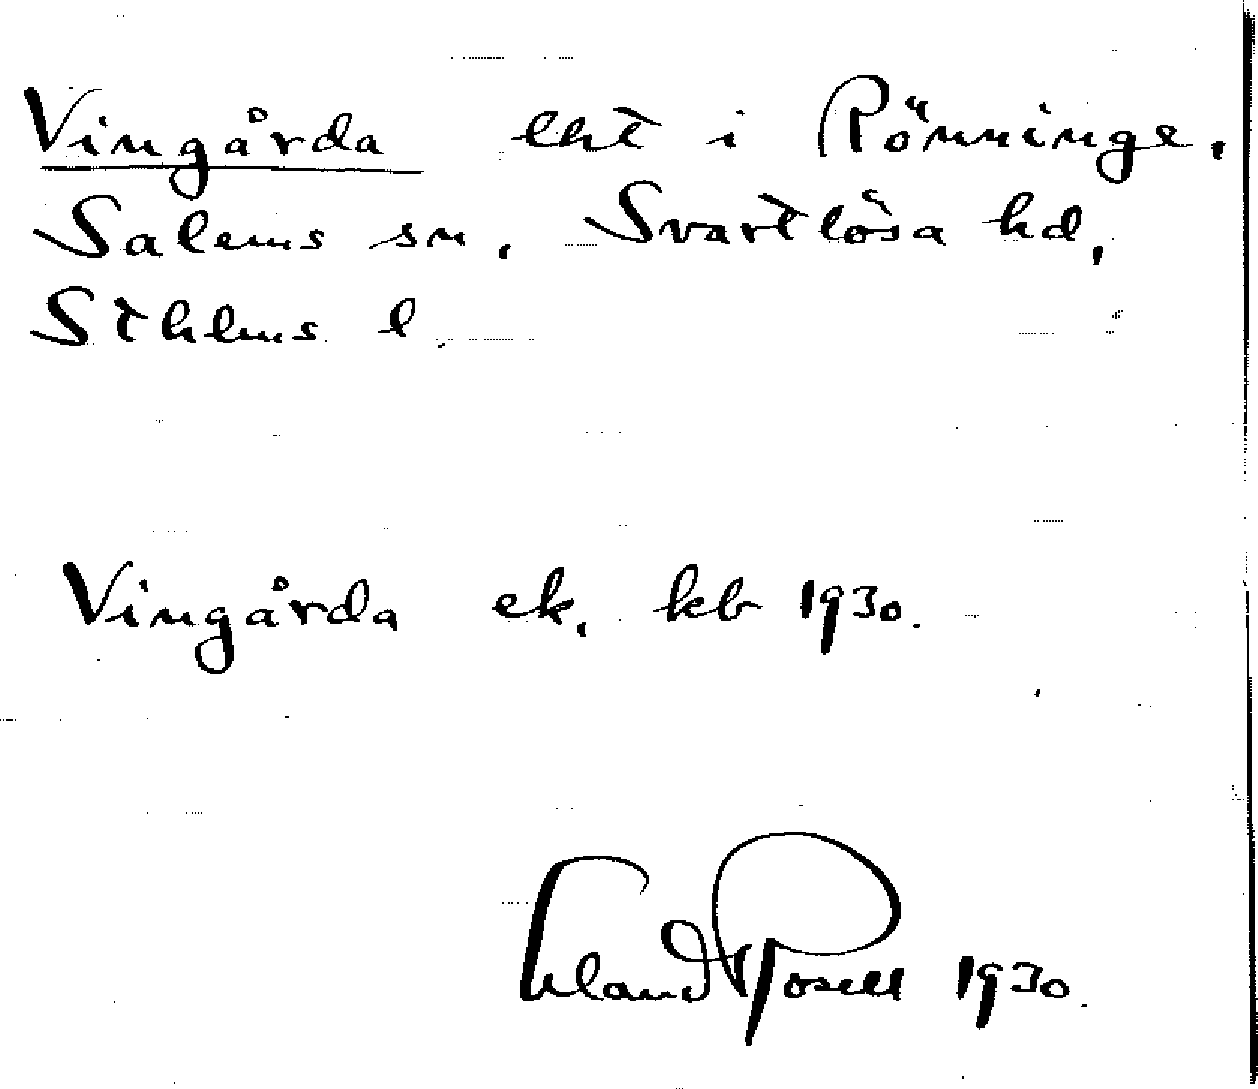 Vingårda lht i Rönninge,
Salems sn, Svartlösa hd,
Sthlms l.
Vingårda ek, kb 1930.
Erland Rosell 1930.